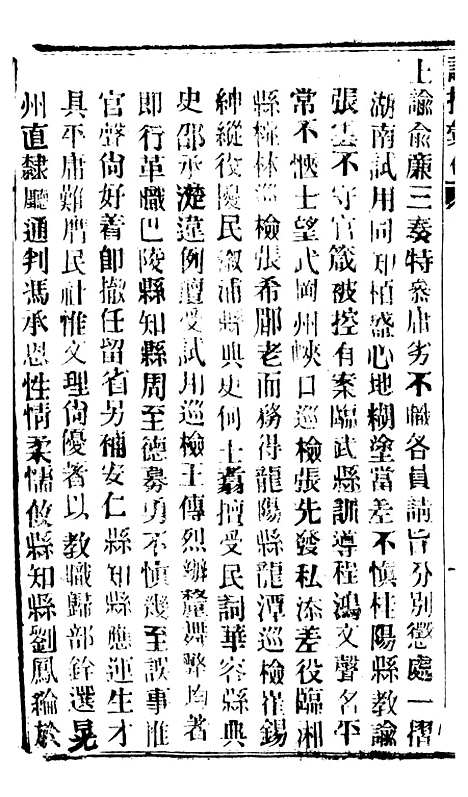 上諭俞廉三奏特參庸劣不職各員請旨分別懲處一摺
湖南試用同知柏盛心地糊塗當差不慎桂陽縣教諭
張雲不守官箴被控有案臨武縣訓導程鴻文聲名平
常不愜士望武岡州峽口巡檢張先發私添差役臨湘
縣桃林巡檢張希郿老而務得龍陽縣龍潭巡檢崔錫
紳縱役擾民漵浦縣典史何士翥擅受民詞華容縣典
史邵承灐違例擅受試用巡檢王傳烈辦釐舞弊均著
即行革職巴陵縣知縣周至德募勇不慎幾至誤事惟
官聲尚好着卽撤任留省另補安仁縣知縣應運生才
具平庸難膺民社惟文理尙優著以教職歸部銓選晃
州直隸廳通判馮承恩性情柔懦攸縣知縣劉鳳綸於